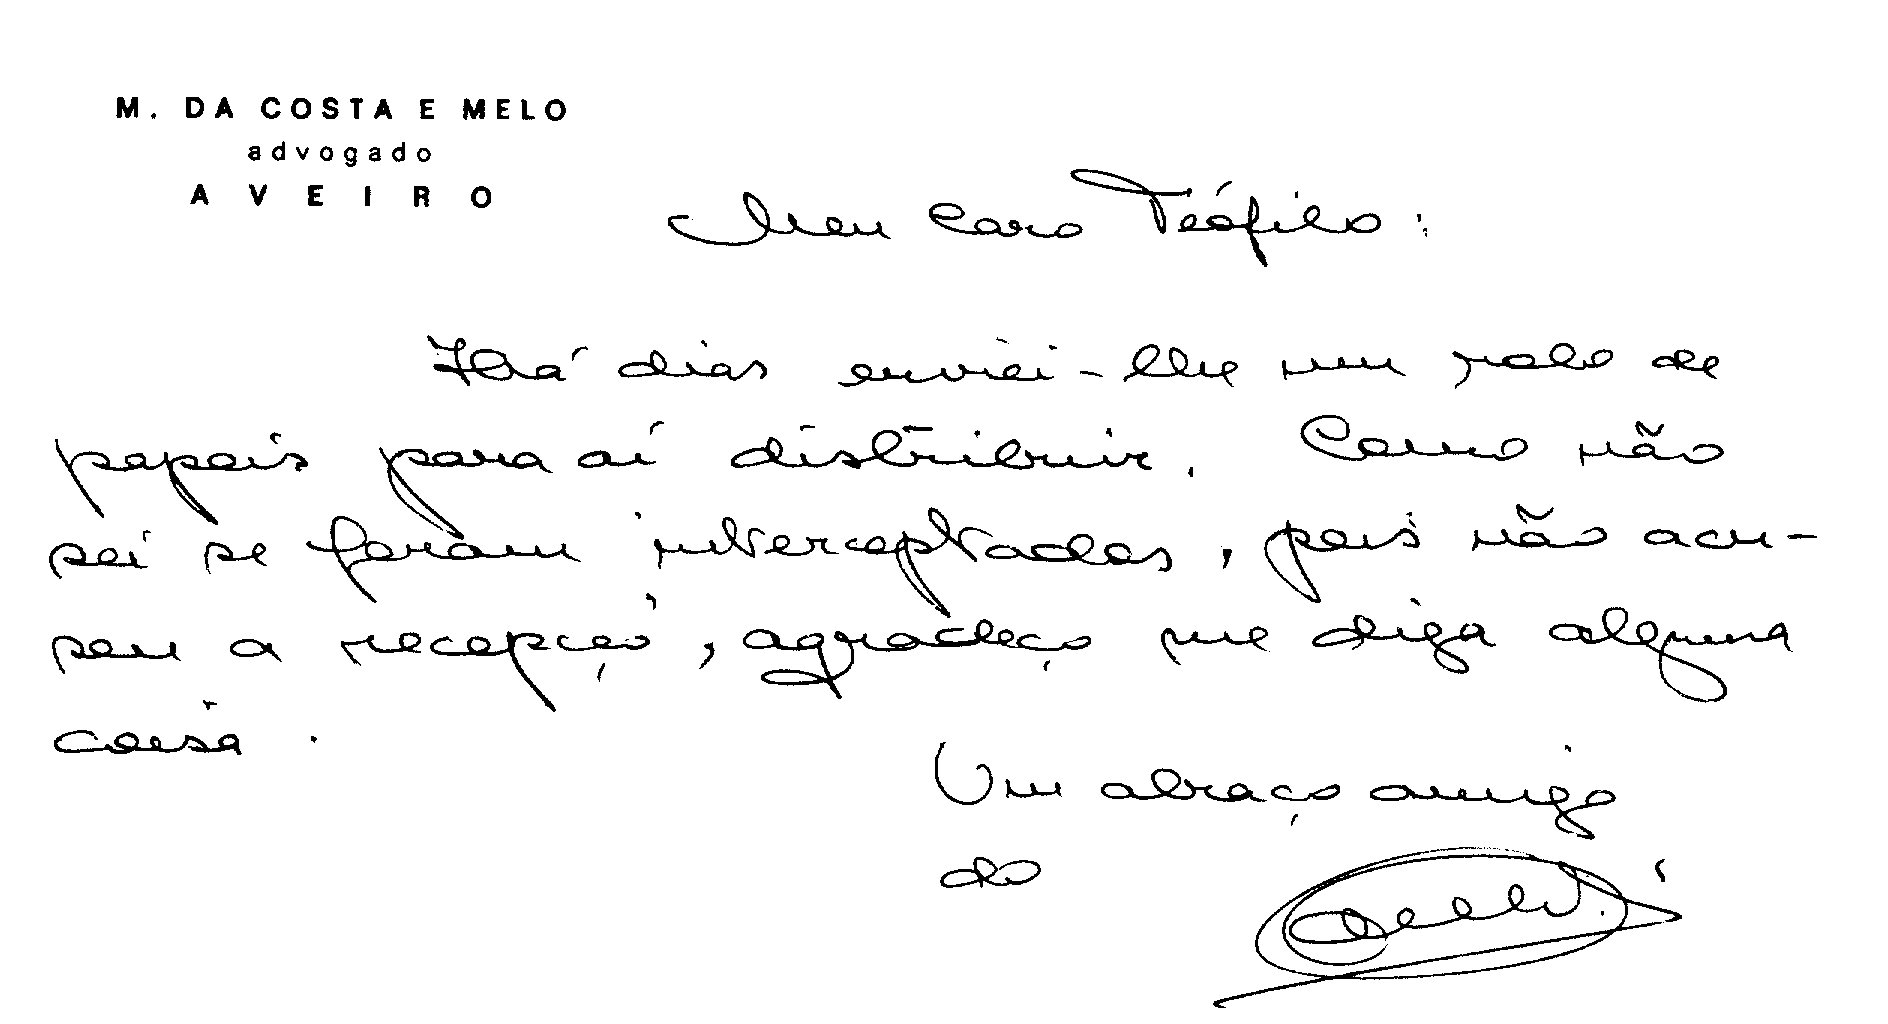 M. DA COSTA E MELO
advogado
AVEIRO
Meu Caro Teófilo:
Há dias enviei-lhe um rolo de
papeis para aí distribuir. Como não
sei se foram interceptados, pois não acu-
sou a recepção, agradeço me diga alguma
coisa.
Um abraço amigo
do